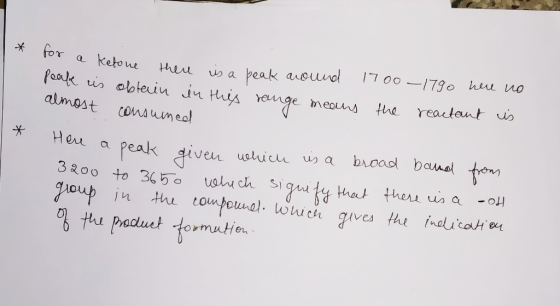 * for a ketone there is a peak around 1700-1790 here no
peak is obtain in this range means the reactant is
almost consumed
* Here a peak given which is a broad band from
3200 to 3650 which signify that there is a -OH
group in the compound. Which gives the indication
of the product formation.